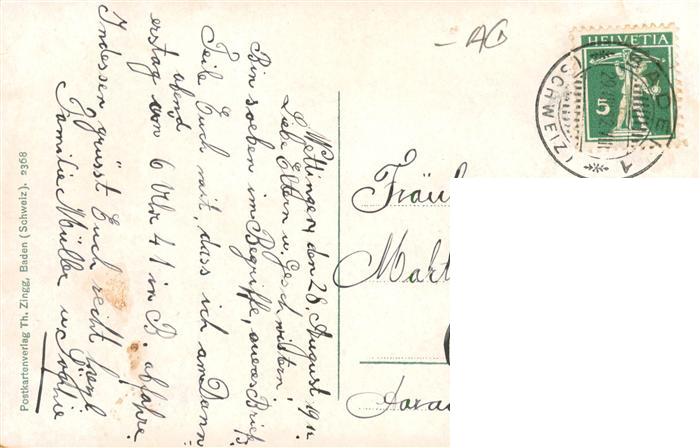 Wettingen, den 28. August 1911.
Liebe Eltern u. Geschwistern!
Bin soeben im Begriffe, eueren Brief
Teile Euch mit, dass ich am Donn
erstag abend
um 6 Uhr 41 in B. abfahre.
Indessen grüsst Euch recht herzl
Familie Müller u. Sophie
Postkartenverlag Th. Zingg, Baden (Schweiz). 2368
AG
HELVETIA
5
BADEN
(SCHWEIZ)
1
Fräul
Mart
Aara